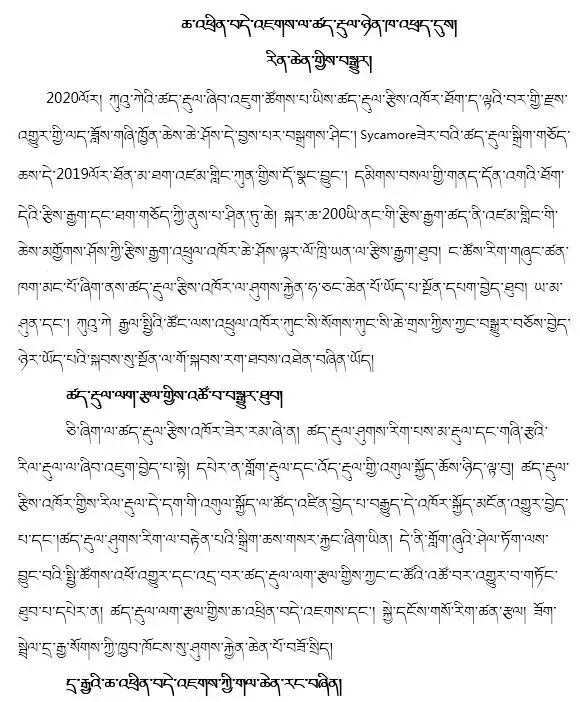 ཆ་འཕྲིན་བདེ་འཇགས་ལ་ཚད་རྡུལ་ཉེན་ཁ་འཕྲད་དུས།
རིན་ཆེན་གྱིས་བསྒྱུར།
2020ལོར། ཀུའུ་ཀེའི་ཚད་རྡུལ་ཞིབ་འཇུག་ཚོགས་པ་ཡིས་ཚད་རྡུལ་རྩིས་འཁོར་ཐོག་ད་ལྟའི་བར་གྱི་རྫས་
འགྱུར་གྱི་ལད་ཟློས་གཞི་ཁྱོན་ཆེས་ཆེ་ཤོས་དེ་བྱས་པར་བསྒྲགས་ཤིང་། Sycamoreཟེར་བའི་ཚད་རྡུལ་སྒྲིག་གཅོད་
ཆས་དེ་2019ལོར་ཐོན་མ་ཐག་འཛམ་གླིང་ཀུན་གྱིས་དོ་སྣང་བྱུང་། དམིགས་བསལ་གྱི་གནད་དོན་འགའི་ཐོག་
དེའི་རྩིས་རྒྱག་དང་ཐག་གཅོད་ཀྱི་ནུས་པ་ཤིན་ཏུ་ཆེ། སྐར་ཆ་200ཡི་ནང་གི་རྩིས་རྒྱག་ཚད་ནི་འཛམ་གླིང་གི་
ཆེས་མགྱོགས་ཤོས་ཀྱི་རྩིས་རྒྱག་འཕྲུལ་འཁོར་ཆེ་ཤོས་ལྟར་ལོ་ཁྲི་ཡན་ལ་རྩིས་རྒྱག་ཐུབ། ང་ཚོས་རིག་གཞུང་ཚན་
ཁག་མང་པོ་ཞིག་ནས་ཚད་རྡུལ་རྩིས་འཁོར་ལ་ཤུགས་རྐྱེན་ཧ་ཅང་ཆེན་པོ་ཡོད་པ་སྔོན་དཔག་བྱེད་ཐུབ། ཡ་མ་
ཤུན་དང་། ཀུའུ་ཀེ རྒྱལ་སྤྱིའི་ཚོང་ལས་འཕྲུལ་འཁོར་ཀུང་སི་སོགས་ཀུང་སི་ཆེ་གྲས་ཀྱིས་ཀྱང་བསྒྱུར་བཅོས་བྱེད་
ཉེར་ཡོད་པའི་སྐབས་སུ་སྔོན་ལ་གོ་སྐབས་རག་ཐབས་འཐེན་བཞིན་ཡོད།
ཚད་རྡུལ་ལག་རྩལ་གྱིས་འཚོ་བ་བསྒྱུར་ཐུབ།
ཅི་ཞིག་ལ་ཚད་རྡུལ་རྩིས་འཁོར་ཟེར་རམ་ཞེ་ན། ཚད་རྡུལ་ཤུགས་རིག་པས་མ་རྡུལ་དང་གཞི་རྩའི་
རིལ་རྡུལ་ལ་ཞིབ་འཇུག་བྱེད་པ་སྟེ། དཔེར་ན་གློག་རྡུལ་དང་འོད་རྡུལ་གྱི་འགུལ་སྐྱོད་ཆོས་ཉིད་ལྟ་བུ། ཚད་རྡུལ་
རྩིས་འཁོར་གྱིས་རིལ་རྡུལ་དེ་དག་གི་འགུལ་སྐྱོད་ལ་ཚོད་འཛིན་བྱེད་པ་བརྒྱུད་དེ་འཁོར་སྐྱོད་མངོན་འགྱུར་བྱེད་
པ་དང་།ཚད་རྡུལ་ཤུགས་རིག་ལ་བརྟེན་པའི་སྒྲིག་ཆས་གསར་རྐྱང་ཞིག་ཡིན། དེ་ནི་གློག་ཞུའི་ཤེལ་ཏོག་ལས་
བྱུང་བའི་སྤྱི་ཚོགས་འཕོ་འགྱུར་དང་འདྲ་བར་ཚད་རྡུལ་ལག་རྩལ་གྱིས་ཀྱང་ང་ཚོའི་འཚོ་བར་འགྱུར་བ་གཏོང་
ཐུབ་པ་དཔེར་ན། ཚད་རྡུལ་ལག་རྩལ་གྱིས་ཆ་འཕྲིན་བདེ་འཇགས་དང་། སྐྱེ་དངོས་གསོ་རིག་ཚན་རྩལ། ཟོག་
སྦྲེལ་དྲ་རྒྱ་སོགས་ཀྱི་ཁྱབ་ཁོངས་སུ་ཤུགས་རྐྱེན་ཆེན་པོ་བཟོ་སྲིད།
དྲ་རྒྱའི་ཆ་འཕྲིན་བདེ་འཇགས་ཀྱི་གལ་ཆེན་རང་བཞིན།